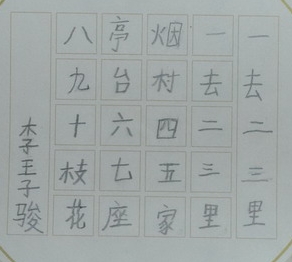 一去二三里
一去二三里
烟村四五家
亭台六七座
八九十枝花
李王子骏